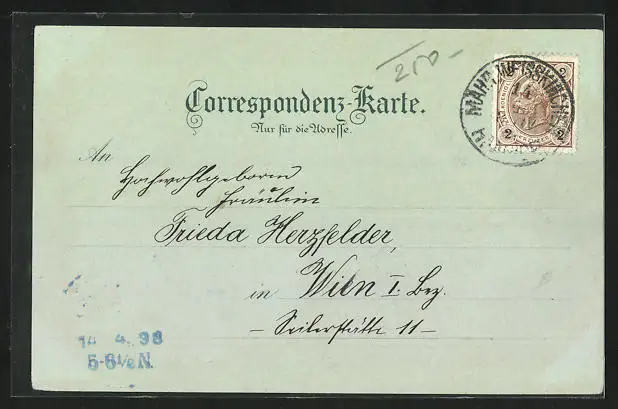 250-
Correspondenz-Karte.
Nur für die Adresse.
An
Hochwohlgeboren
Fräulein
Frieda Herzfelder,
in Wien I. Bez.
- Seilerstätte 11 -
14 4. 98
5-6½N.
MÄHR. WEISSKIRCHEN
2 2
2 2